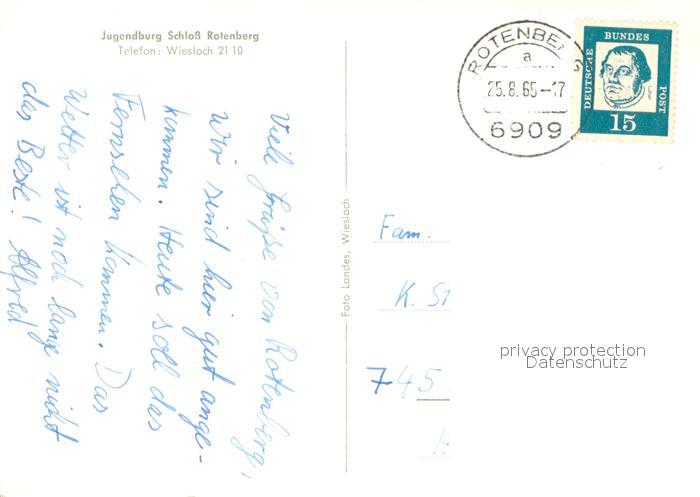 Jugendburg Schloß Rotenberg
Telefon: Wiesloch 21 10
Viele Grüße von Rotenberg,
Wir sind hier gut ange-
kommen. Heute soll das
Fernsehen kommen. Das
Wetter ist noch lange nicht
das Beste! Alfred
Foto Landes, Wiesloch
ROTENBERG
a
25.8.65-17
6909
DEUTSCHE
BUNDES
POST
15
Fam.
K. St
745
privacy protection
Datenschutz